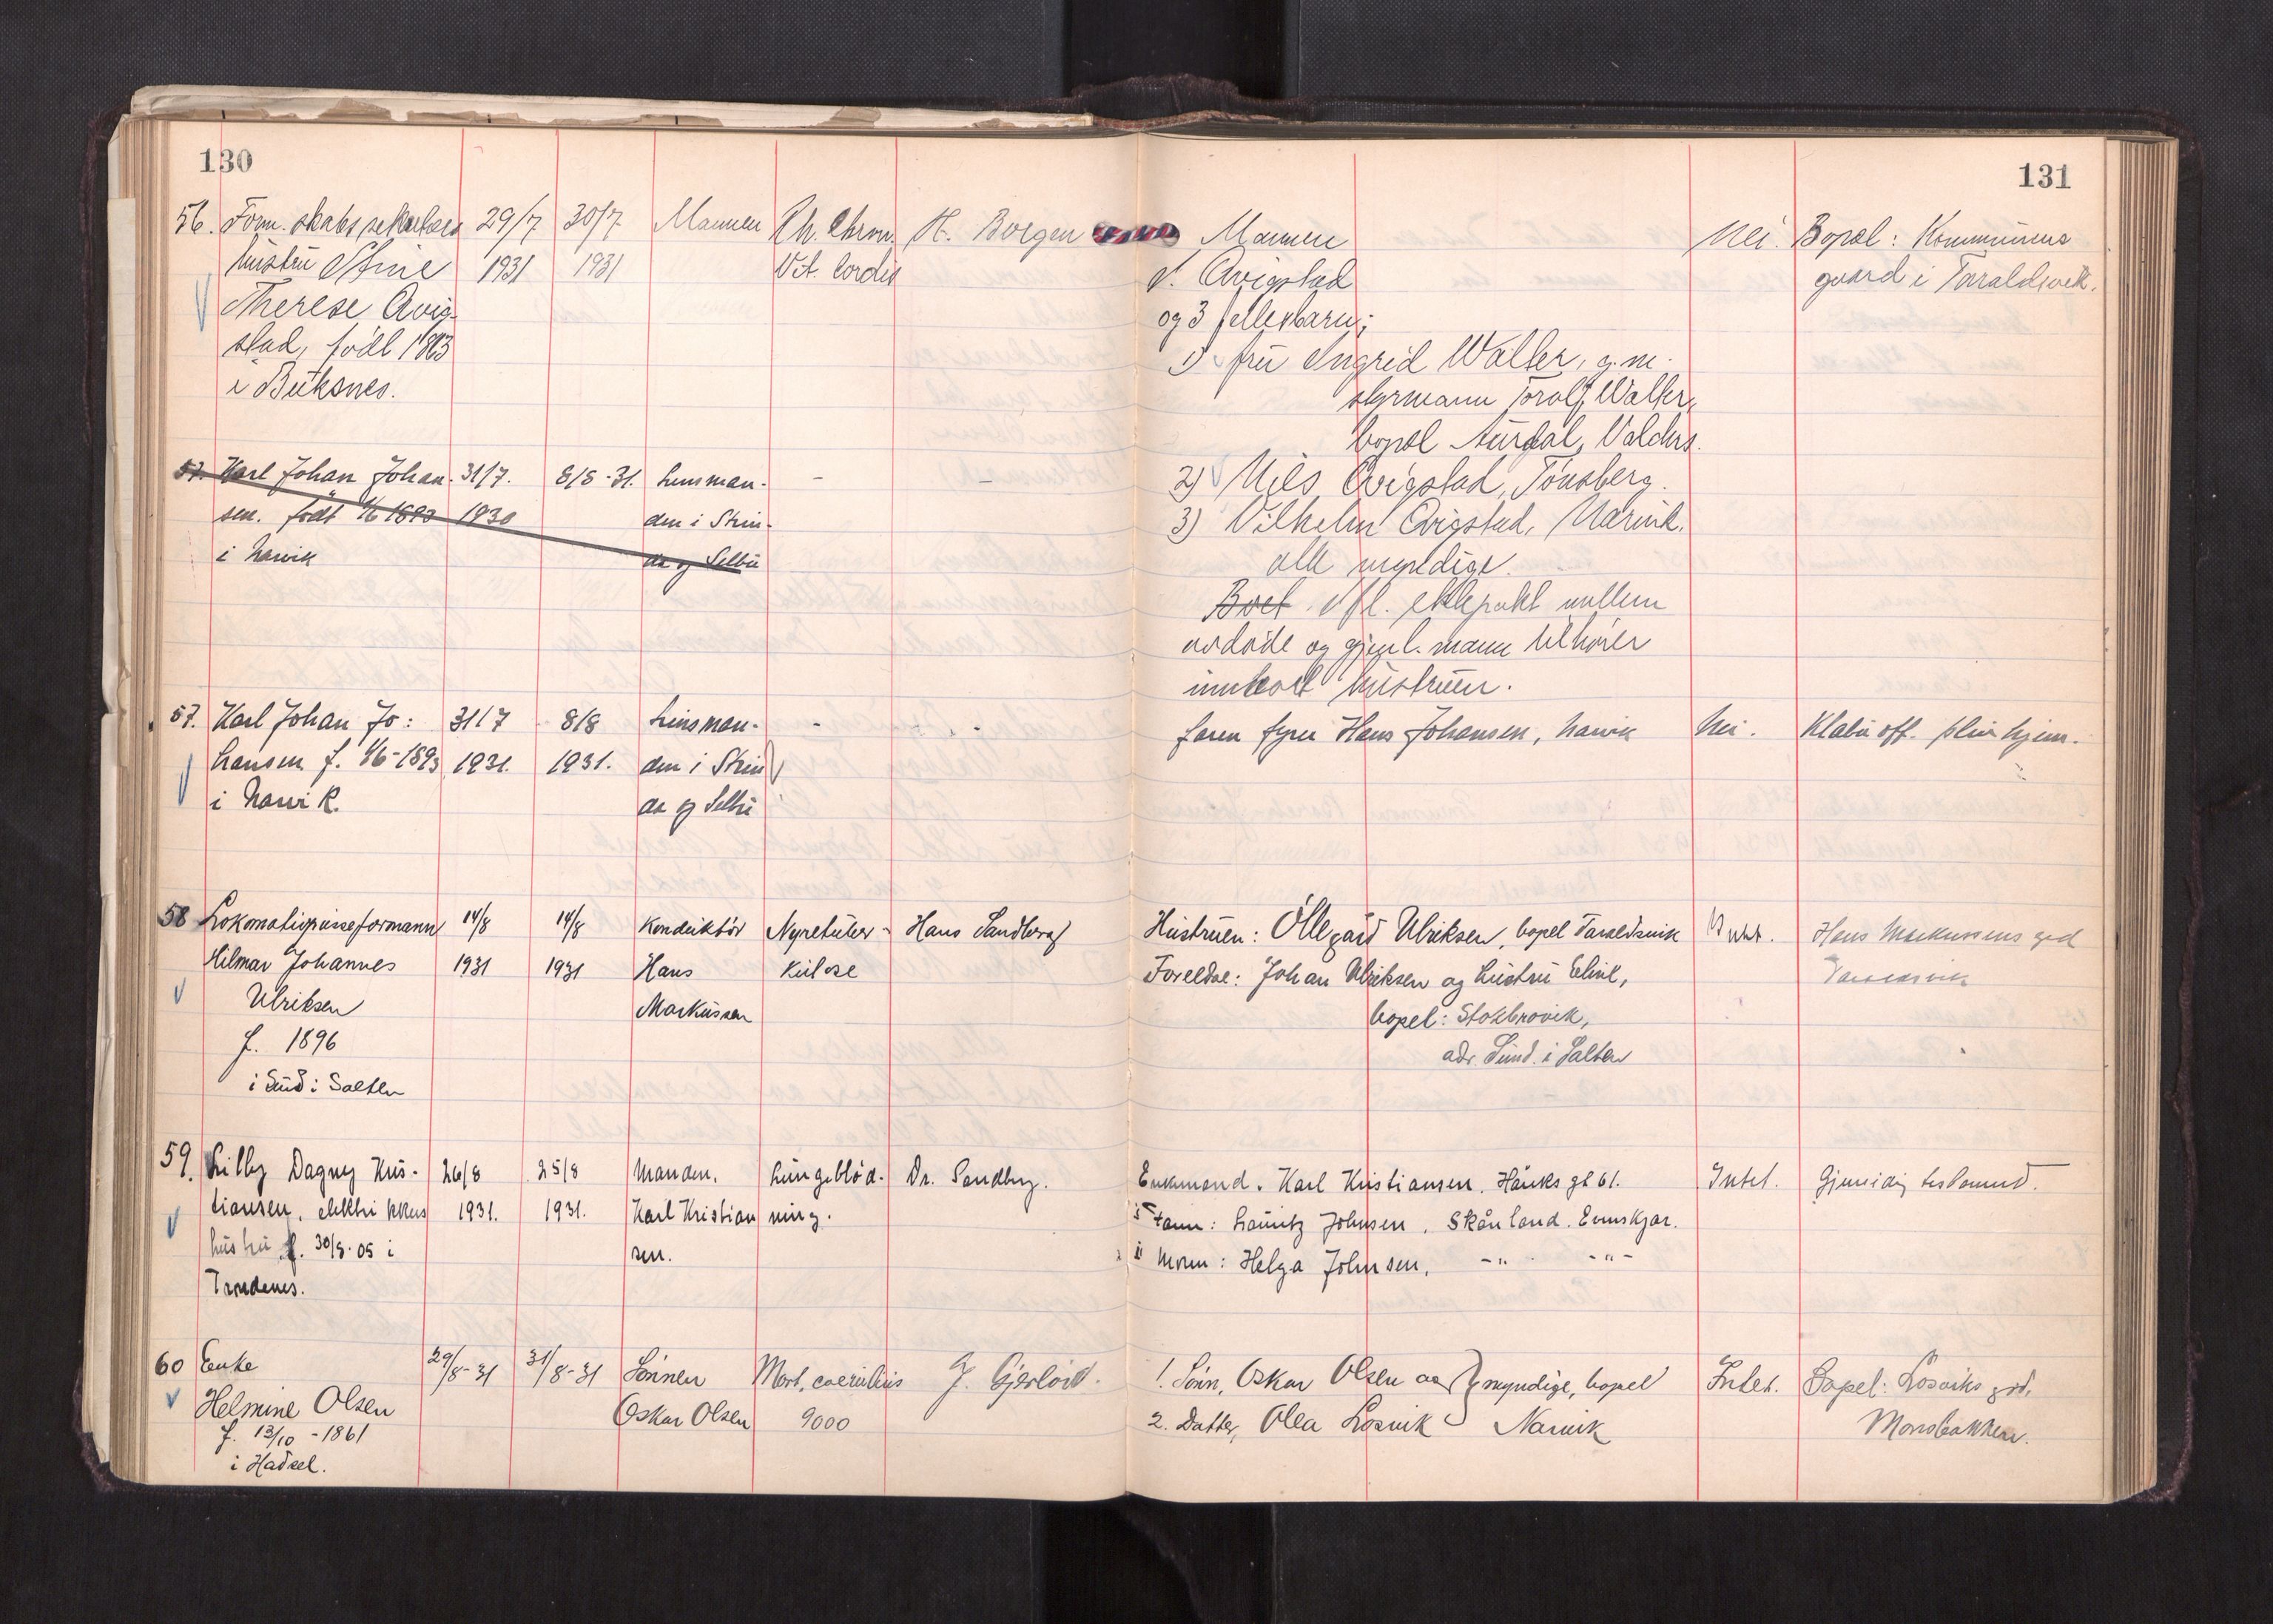 130
56. Form. skabs sekretær
hustru Stine
Therese Qvig-
stad, født 1863
i Buksnes.
29/7
1931
30/7
1931
Mannen
Rh. Chron.
Vit. Cordis
H. Borgen
57. Karl Johan Johan-
sen. født 1/6 1893
i Narvik
31/7.
1930
8/8-31.
Lensman-
den i Strin-
da og Selbu
-
-
57. Karl Johan Jo:
hansen f. 1/6-1893
i Narvik.
31/7
1931.
8/8
1931.
Lensman-
den i Strin
da og Selbu
-
-
58 Lokomotivpusseformann
Hilmar Johannes
Ulriksen
f. 1896
i Sund i Salten
14/8
1931
14/8
1931
Konduktør
Hans
Markussen
Nyretuber-
kulose
Hans Sandberg
59. Lilly Dagny Kris-
tiansen, elektrikkers
hustru f. 30/8-05 i
Trondenes.
26/8
1931.
25/8
1931.
Manden.
Karl Kristian
sen.
Lungeblød-
ning.
Dr. Sandberg.
60 Enke
Helmine Olsen
f. 13/10 - 1861
i Hadsel.
29/8-31
31/8-31
Sønnen
Oskar Olsen
Morb. coeruleus
9000
J. Gjerløw.
131
Mannen
Qvigstad
og 3 fellesbarn:
1) fru Ingrid Walter, g.m.
styrmann Torolf Walter,
bopæl Aurdal, Valdres.
2) Nils Qvigstad, Tønsberg.
3) Vilhelm Qvigstad, Narvik.
alle myndige.
Boet ifl. ektepakt mellem
avdøde og gjenl. mann tilhører
innboet hustruen.
Nei.
Bopæl: Kommunens
gaard i Taraldsvik.
faren fyrer Hans Johansen, Narvik
Nei.
Klæbu off. pleiehjem.
Hustruen: Ollegård Ulriksen, bopel Taraldsvik
Foreldre: Johan Ulriksen og hustru Eline,
bopel: Stokbrovik,
adr. Sund i Salten
Intet.
Hans Markussens grd
Taraldsvik
Enkemand. Karl Kristiansen. Håriks gt 61.
Faren: Lauritz Johnsen, Skånland. Evenskjær.
Moren: Helga Johnsen, -"- -"-
Intet.
Gjensidig testament.
1. Sønn, Oskar Olsen og } myndige, bopel
2. Datter, Olea Losvik Narvik
Intet.
Bopel: Losviks grd,
Morsbakken.